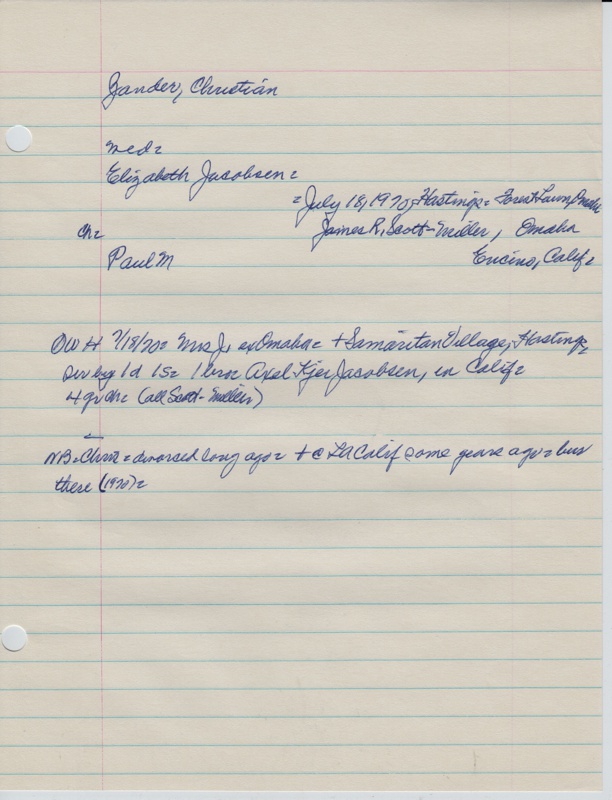 Zander, Christian
med=
Elizabeth Jacobsen=
= July 18, 1970= Hastings= Forest Lawn, Omaha
ch= James R. Scott-Miller, Omaha
Paul M Encino, Calif=
OWH 7/18/70= Mrs J, ex Omaha= + Samaritan Village, Hastings=
sur by 1d 1s= 1 bro= Axel Kjer Jacobsen, in Calif=
4 grch= (all Scott-Miller)
NB= Chris= divorced long ago= + @ LA Calif some years ago= bur
there (1970)=